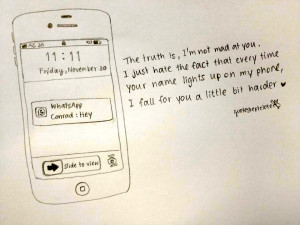 11:11
Friday, November 20
WhatsApp
Conrad : Hey
Slide to view
The truth is, I'm not mad at you.
I just hate the fact that every time
your name lights up on my phone,
I fall for you a little bit harder